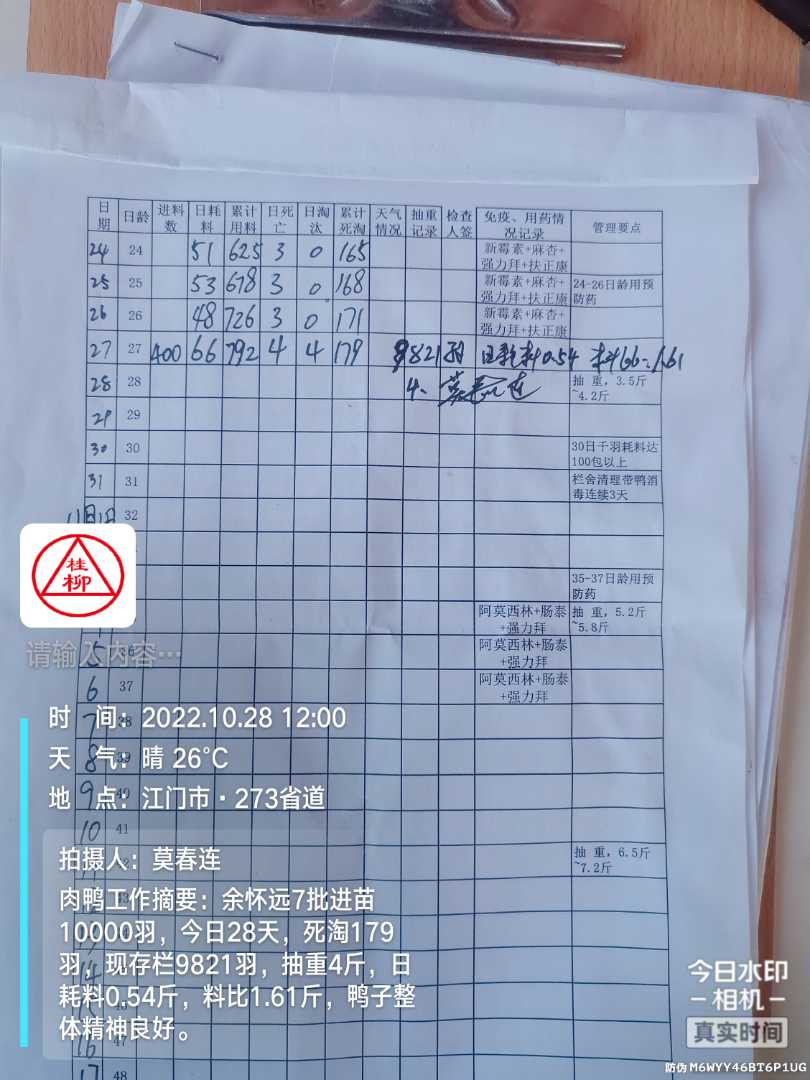 日期 日龄 进料数 日耗料 累计用料 日死亡 日淘汰 累计死淘 天气情况 抽重记录 检查人签 免疫、用药情况记录 管理要点
24 24 51 625 3 0 165 新霉素+麻杏+强力拜+扶正康
25 25 53 678 3 0 168 新霉素+麻杏+强力拜+扶正康 24-26日龄用预防药
26 26 48 726 3 0 171 新霉素+麻杏+强力拜+扶正康
27 27 400 66 792 4 4 179 9821羽 日耗料0.54 料比:1.61
28 28 4. 莫春连 抽重,3.5斤~4.2斤
29 29
30 30 30日千羽耗料达100包以上
31 31 栏舍清理带鸭消毒连续3天
11月1日 32
35-37日龄用预防药
阿莫西林+肠泰+强力拜 抽重,5.2斤~5.8斤
5 36 阿莫西林+肠泰+强力拜
6 37 阿莫西林+肠泰+强力拜
7 38
8 39
9 40
10 41
抽重,6.5斤~7.2斤
14
16 47
17 48
桂柳
请输入内容…
时 间：2022.10.28 12:00
天 气：晴 26°C
地 点：江门市·273省道
拍摄人：莫春连
肉鸭工作摘要：余怀远7批进苗
10000羽，今日28天，死淘179
羽，现存栏9821羽，抽重4斤，日
耗料0.54斤，料比1.61斤，鸭子整
体精神良好。
今日水印
-相机-
真实时间
防伪 M6WYY46BT6P1UG